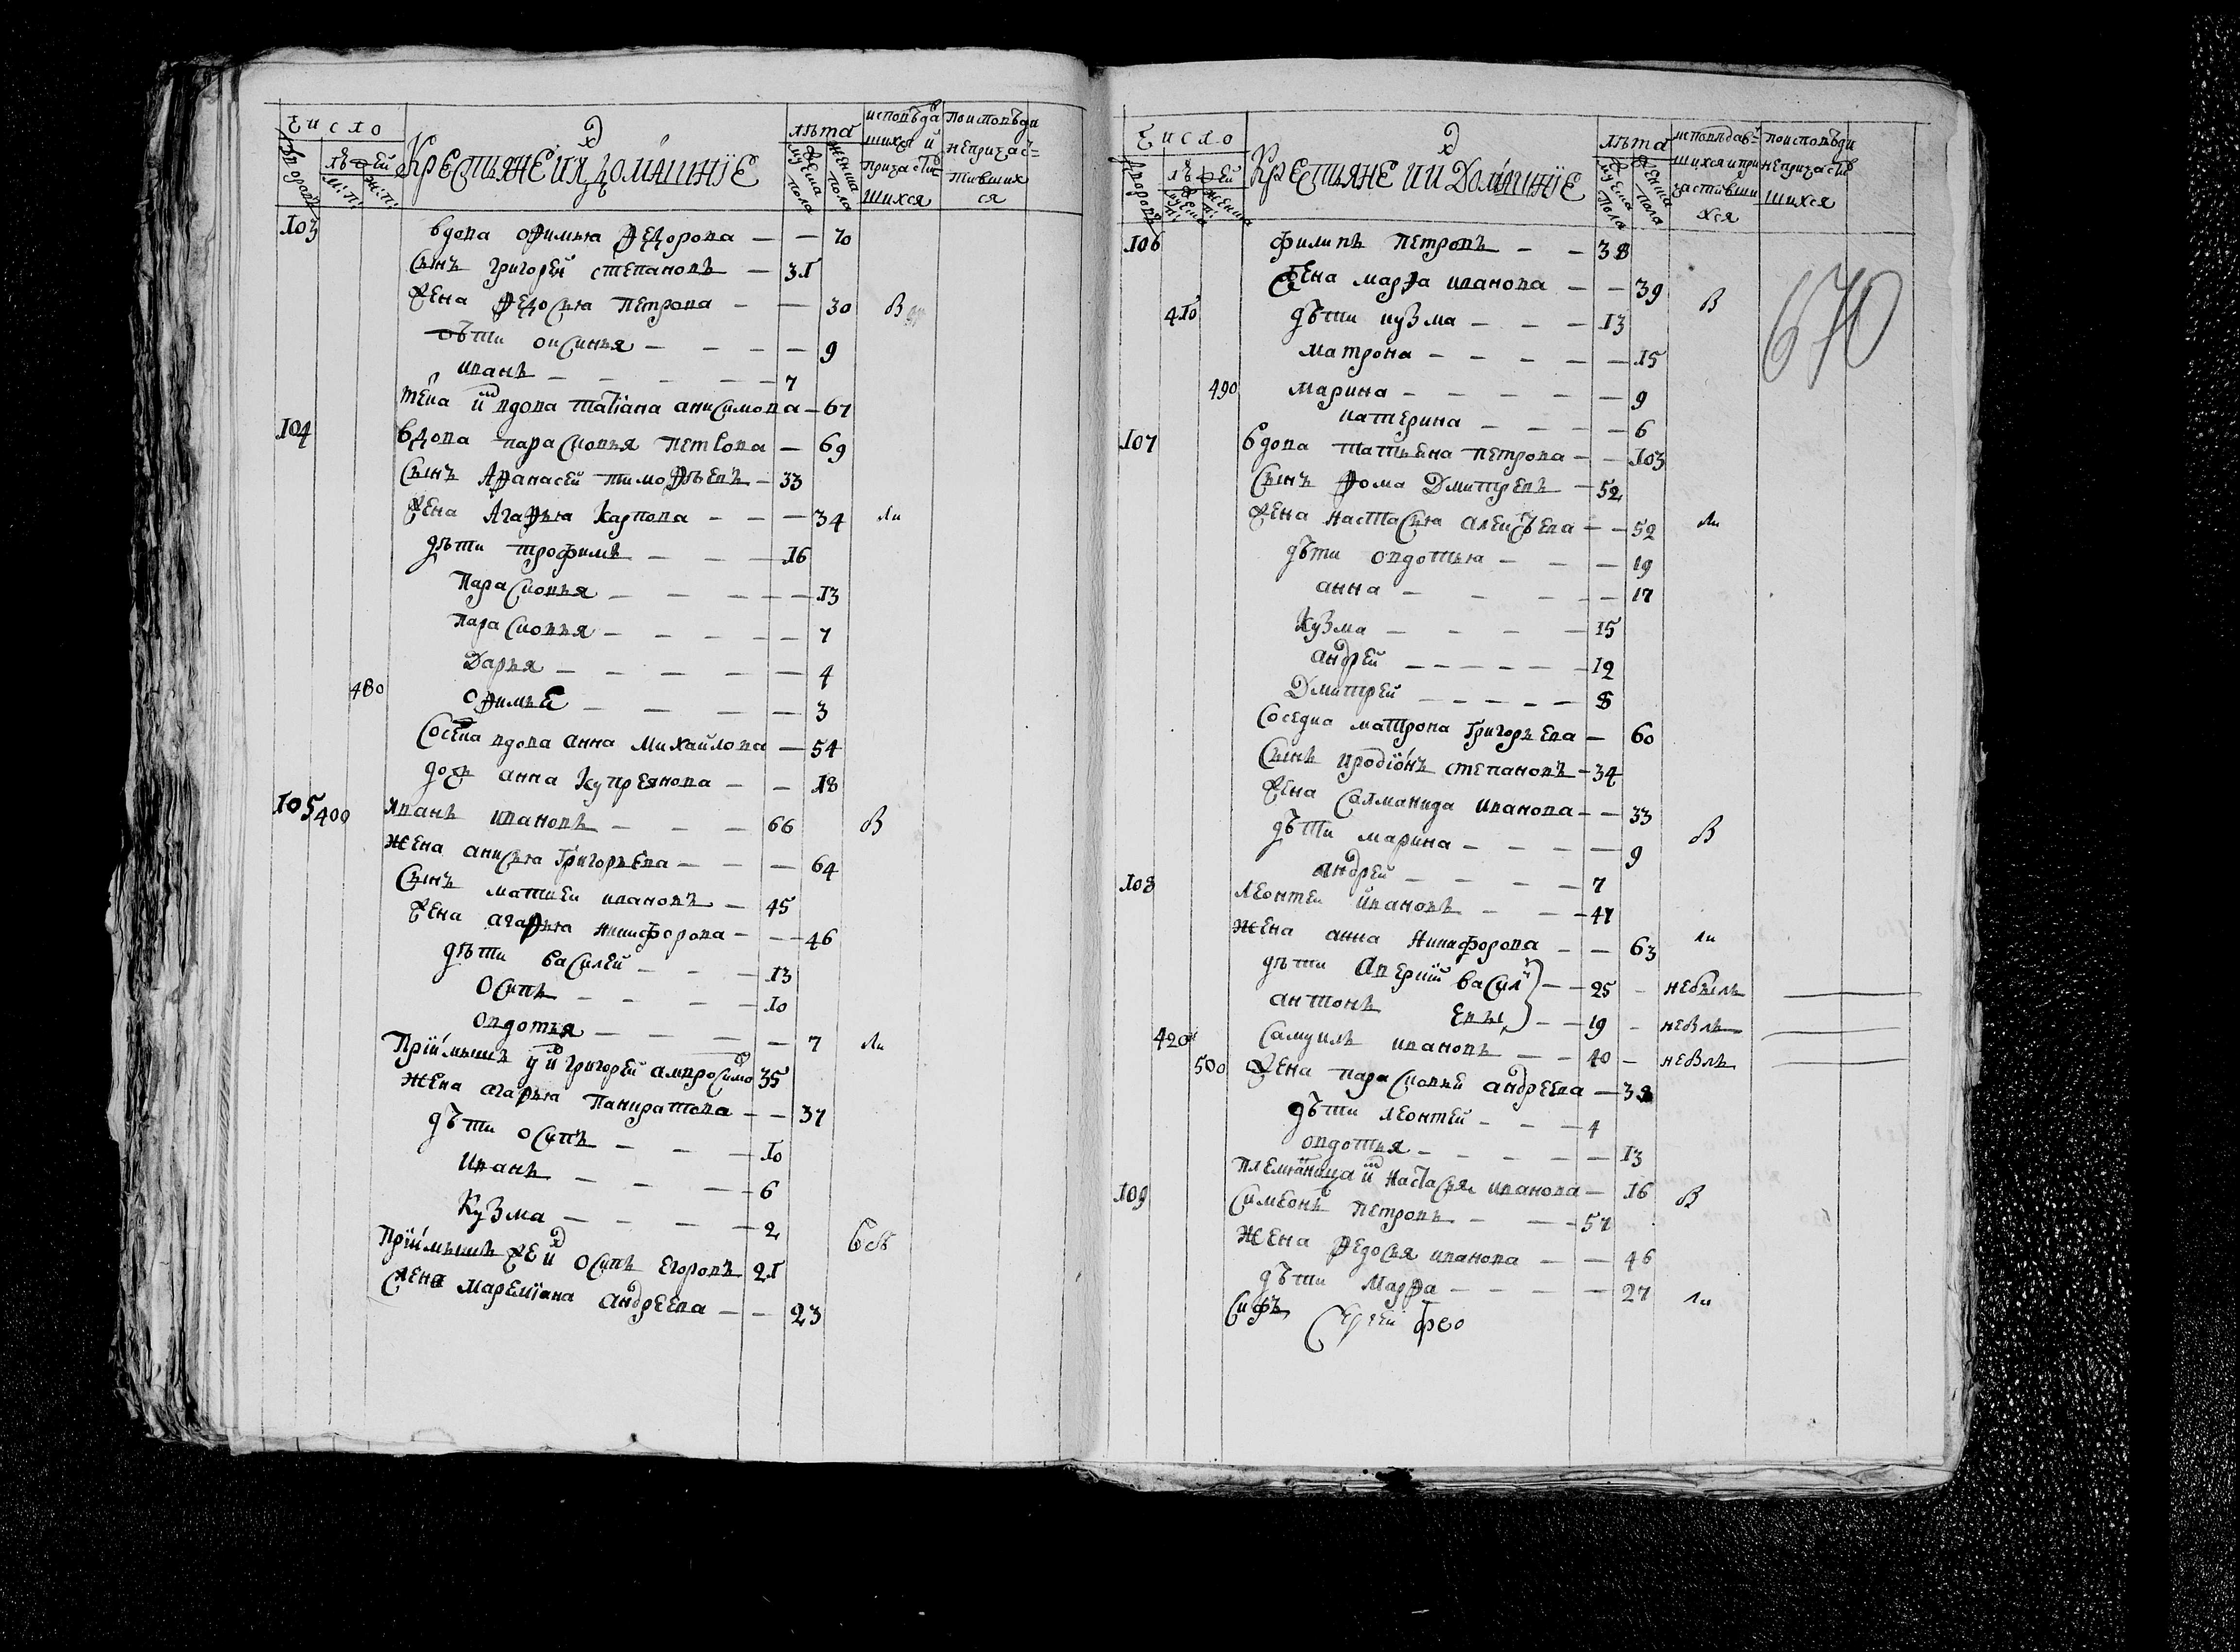 Число
Крестьяне ихъ домашніе
лѣта
исповѣда
поисповѣди
людей
шихся и
непричас-
м: п:
ж: п:
мужеска пола
женска пола
причасти
тивших
шихся
ся
103 вдова офимья федорова — — 70
сынъ григорей степановъ — 31
жена федосья петрова — — 30 В
дѣти оксинья — — — — 9
иванъ — — — — 7
теща ихъ вдова татіана анисимова — 67
104 вдова парасковья петрова — 69
сынъ афанасей тимофѣевъ — 33
жена агафья карпова — — — 34 ли
дѣти трофимъ — — — 16
парасковья — — — — — 13
парасковья — — — — — 7
дарья — — — — — 4
480 офимья — — — — 3
соседка вдова анна михайлова — 54
дочь анна купреянова — — 18
105 400 иванъ ивановъ — — — 66 В
жена анисья григорьева — — — 64
сынъ матвеи ивановъ — 45
жена агафья никифорова — — — 46
дѣти василей — — — 13
осипъ — — — — 10
овдотья — — — — 7 ли
пріимышъ ихъ григорей амвросимо 35
жена агафья панкратова — — 37
дѣти осипъ — — — 10
иванъ — — — — 6
кузма — — — — 2
пріимышъ же ихъ осипъ егоровъ 21
жена мареміана андреева — — 23
Число
Крестьяне и ихъ домашніе
лѣта
исповѣдав-
поисповѣди
людей
шихся и при
непричасти
мужеска п:
женска п:
мужеска пола
женска пола
частивши
шихся
хся
670
106 филипъ петровъ — — 38
жена марфа иванова — — 39 В
410 дѣти кузма — — — 13
матрона — — — — — 15
490 марина — — — — — 9
катерина — — — — 6
107 вдова татьяна петрова — — 103
сынъ фома дмитревъ — 52
жена настасья алексѣева — — 52 ли
дѣти овдотья — — — 19
анна — — — — 17
кузма — — — — 15
андрей — — — — — — 12
дмитрей — — — — — 8
соседка матрона григорьева — 60
сынъ иродіонъ степановъ — 34
жена саломанида иванова — — 33
дѣти марина — — — — 9 В
андрей — — — — 7
108 леонтеи ивановъ — — — 47
жена анна никифорова — — 63 ли
дѣти аверкій васил — — 25 — небылъ
антонъ евы — — 19 — небылъ
420 самуилъ ивановъ — — 40 — небылъ
500 жена парасковья андреева — 38
дѣти леонтей — — — 4
овдотья — — — — — 13
племянница ихъ настасья иванова — 16
109 симеонъ петровъ — — — 57 В
жена федосья иванова — — 46
дѣти марфа — — — — 27 ли
сергей фео